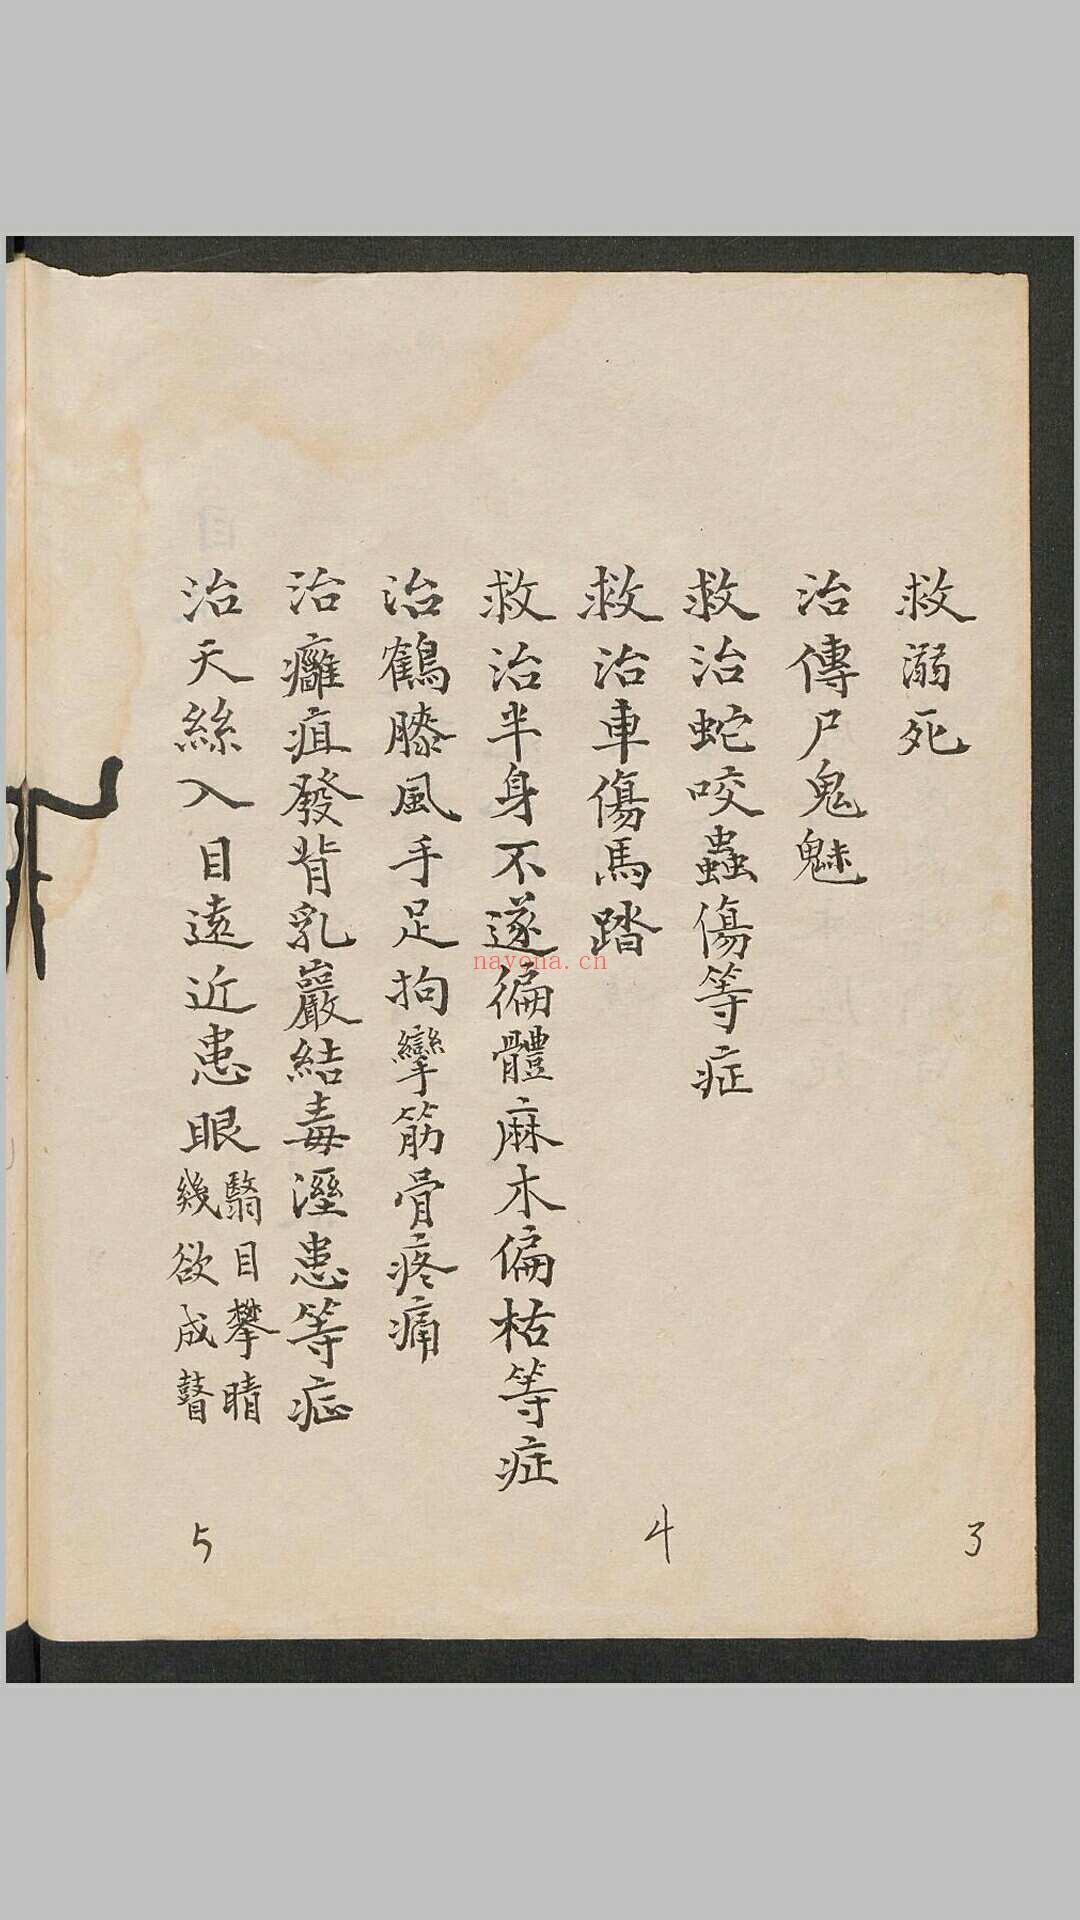 救溺死
治傳尸鬼魅
救治蛇咬蟲傷等症
救治車傷馬踏
救治半身不遂徧體麻木偏枯等症
治鶴膝風手足拘攣筋骨疼痛
治癰疽發背乳巖結毒溼患等症
治天絲入目遠近患眼
翳目攀睛
幾欲成瞽
3
4
5
nayona.cn